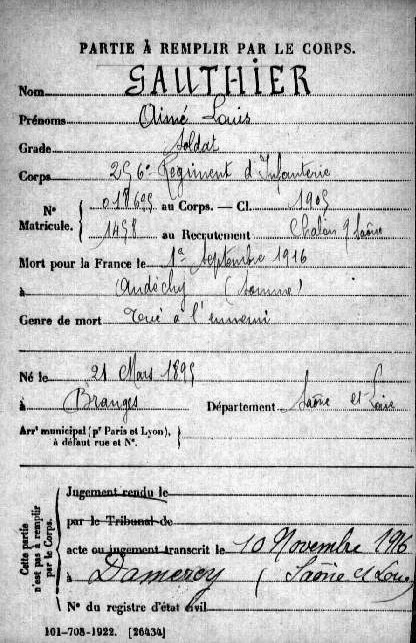 PARTIE À REMPLIR PAR LE CORPS.
Nom GAUTHIER
Prénoms Aimé Louis
Grade Soldat
Corps 256e Régiment d'Infanterie
N° Matricule. { 018695 au Corps. — Cl. 1905
1458 au Recrutement Chalon s/ Saône
Mort pour la France le 1er Septembre 1916
à Andéchy (Somme)
Genre de mort Tué à l'ennemi
Né le 21 Mars 1895
à Branges Département Saône et Loire
Arrt municipal (pr Paris et Lyon), à défaut rue et N°.
Cette partie n'est pas à remplir par le Corps.
Jugement rendu le
par le Tribunal de
acte ou jugement transcrit le 10 Novembre 1916
à Damerey (Saône et Loire)
N° du registre d'état civil
101-708-1922. [26434]